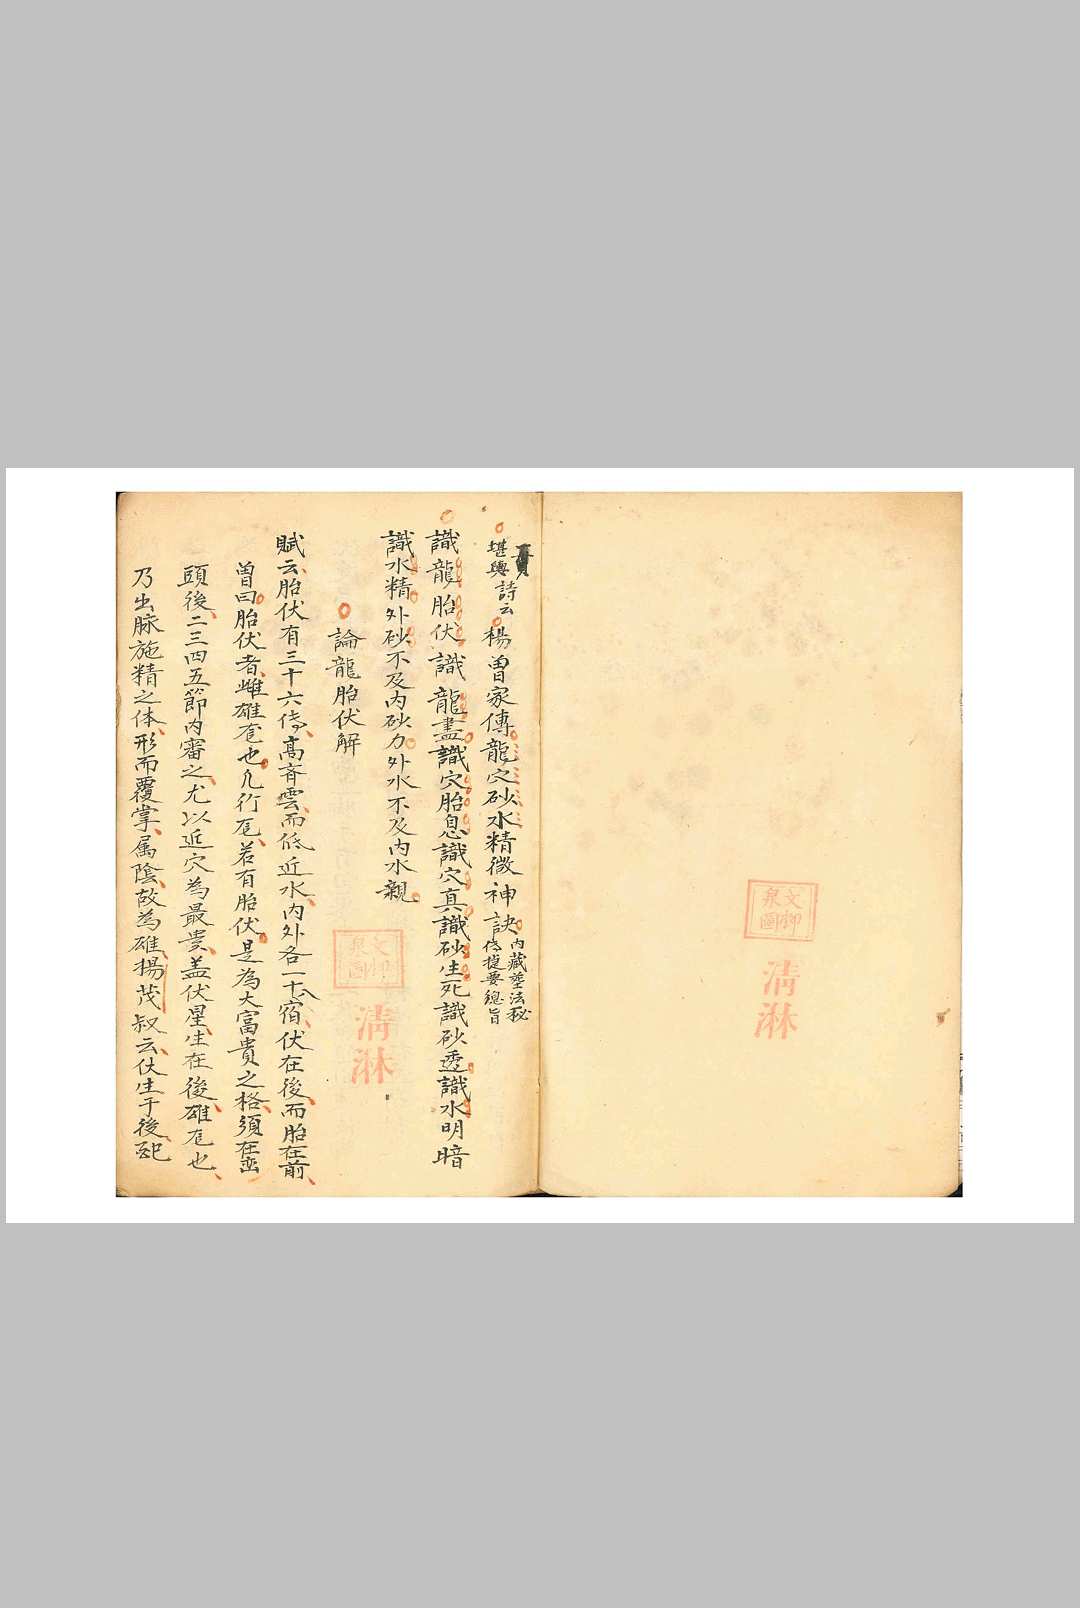 堪輿詩云楊曾家傳龍穴砂水精微神訣內藏塟法秘傳捷要總旨
識龍胎伏識龍盡識穴胎息識穴真識砂生死識砂透識水明暗
識水精外砂不及內砂力外水不及內水親
論龍胎伏解
賦云胎伏有三十六傳高齊雲而低近水內外各一十八宿伏在後而胎在前
曾曰胎伏者雌雄也凡行若有胎伏是為大富貴之格須在巒
頭後二三四五節內審之尤以近穴為最貴盖伏星生在後雄也
乃出脉施精之体形而覆掌属陰故為雄楊茂叔云伏生于後
文柳
泉圖
清淋
文柳
泉圖
清淋